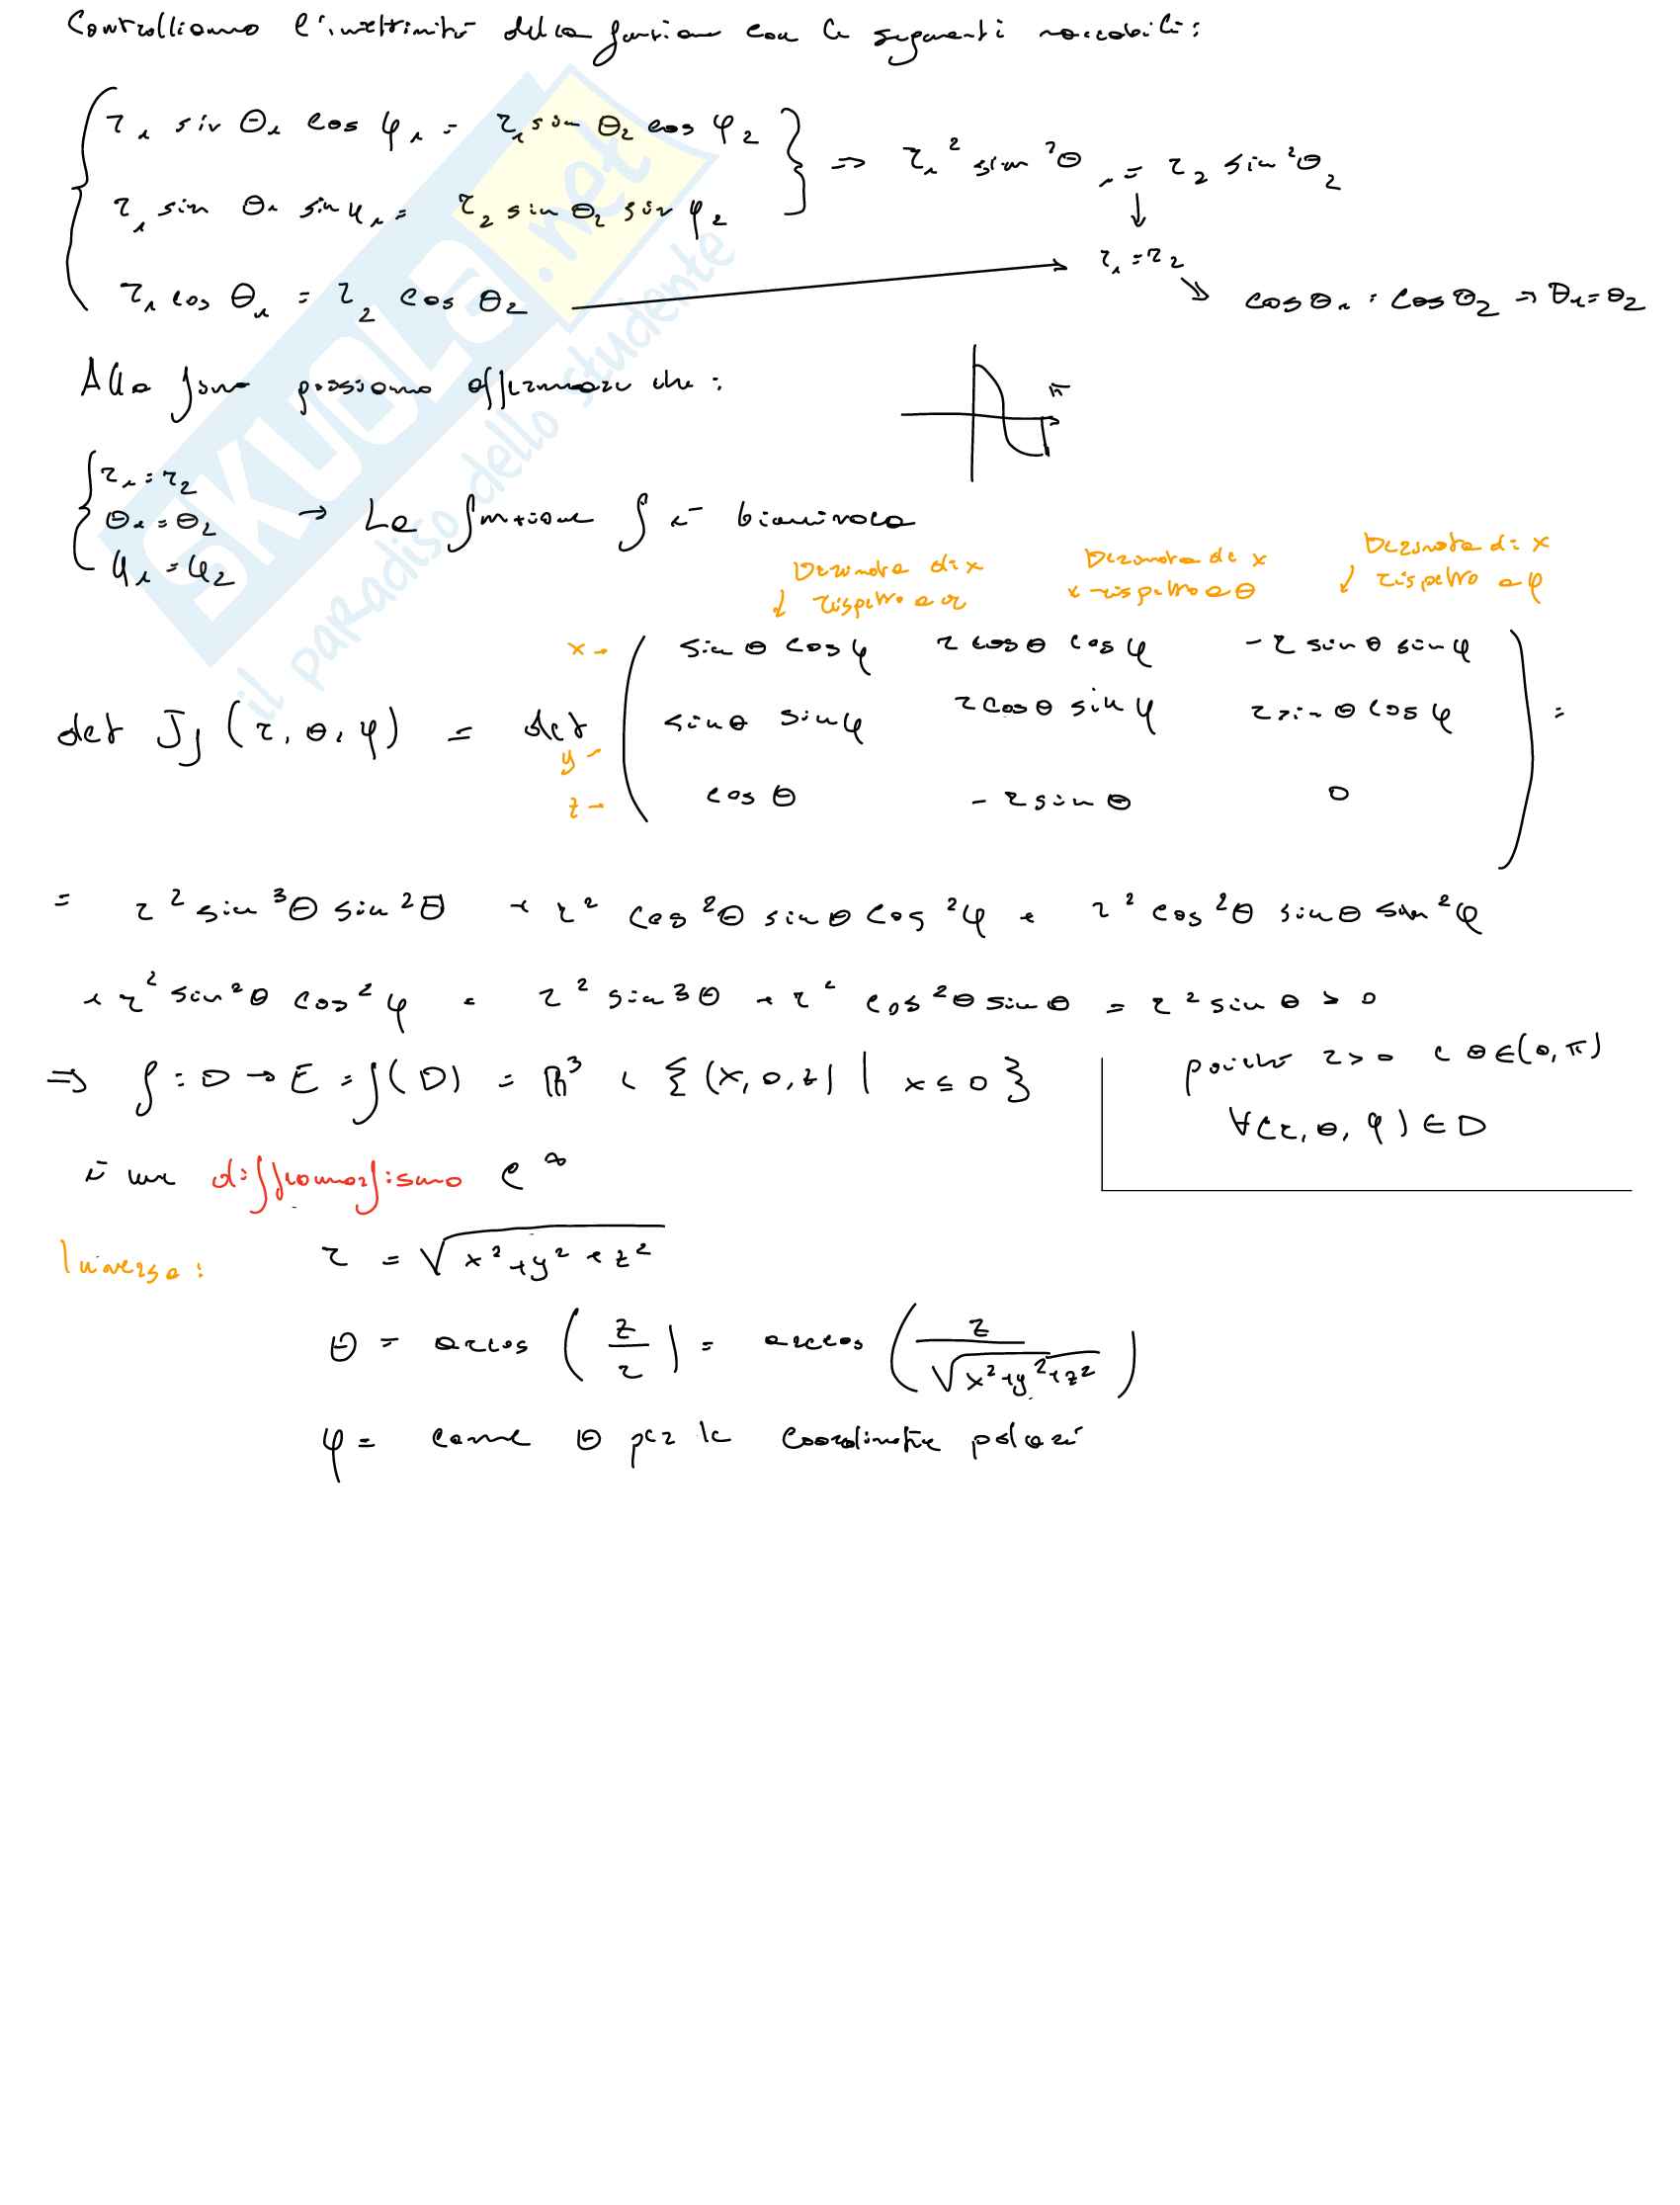 Controlliamo l'iniettività della funzione con le seguenti variabili:
r₁ sin θ₁ cos φ₁ = r₁ sin θ₂ cos φ₂
⇒ r₁² sin²θ₁ = r₂ sin²θ₂
r₁ sin θ₁ sin φ₁ = r₂ sin θ₂ sin φ₂
↓
r₁ cos θ₁ = r₂ cos θ₂ → r₁ = r₂ ↘ cos θ₁ = cos θ₂ ⇒ θ₁ = θ₂
Alla fine possiamo affermare che:
π
r₁ = r₂
θ₁ = θ₂ → La funzione f è biunivoca
φ₁ = φ₂
Derivata di x rispetto a r
Derivata di x rispetto a θ
Derivata di x rispetto a φ
x - sin θ cos φ r cos θ cos φ - r sin θ sin φ
det Jf (r, θ, φ) = det y - sin θ sin φ r cos θ sin φ r sin θ cos φ =
z - cos θ - r sin θ 0
= r² sin³θ sin²θ + r² cos²θ sin θ cos²φ + r² cos²θ sin θ sin²φ
+ r² sin²θ cos²φ = r² sin³θ + r² cos²θ sin θ = r² sin θ > 0
⇒ f : D → E = f(D) = ℝ³ \ {(x, 0, z) | x ≤ 0}
poiché r > 0 e θ ∈ (0, π)
∀(r, θ, φ) ∈ D
è un diffeomorfismo C^∞
Inversa: r = √(x² + y² + z²)
θ = arccos (z/r) = arccos (z/√(x² + y² + z²))
φ = come θ per le coordinate polari
SKUOLA.net
il paradiso dello studente